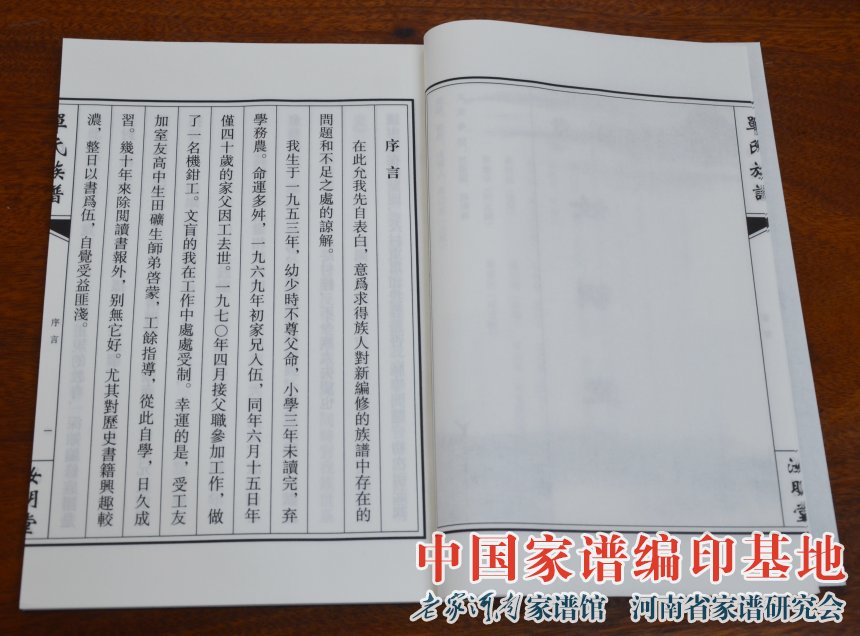 序言
在此允我先自表白，意爲求得族人對新編修的族譜中存在的
問題和不足之處的諒解。
我生于一九五三年，幼少時不尊父命，小學三年未讀完，弃
學務農。命運多舛，一九六九年初家兄入伍，同年六月十五日年
僅四十歲的家父因工去世。一九七〇年四月接父職參加工作，做
了一名機鉗工。文盲的我在工作中處處受制。幸運的是，受工友
加室友高中生田礦生師弟啓蒙，工餘指導，從此自學，日久成
習。幾十年來除閲讀書報外，别無它好。尤其對歷史書籍興趣較
濃，整日以書爲伍，自覺受益匪淺。
單氏族譜
序言
一
汝明堂
單氏族譜
汝明堂
中国家谱编印基地
老家河南家谱馆 河南省家谱研究会